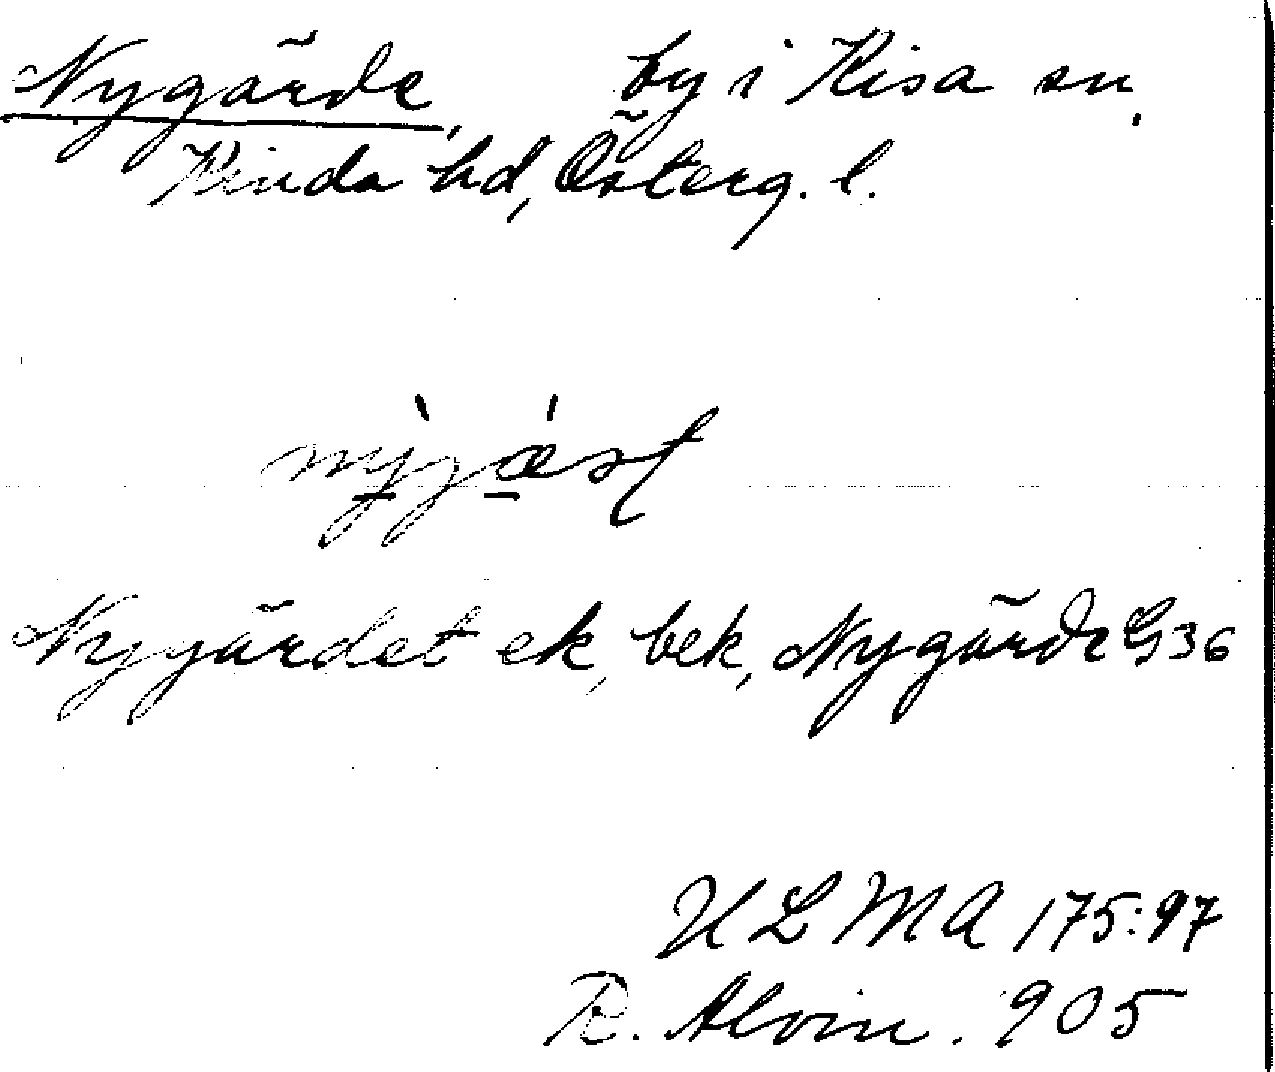 Nygärde, by i Kisa sn,
Kinda hd, Österg. l.
Nygärdet ek, bek, Nygärde G 36
ULMA 175:97
R. Alvin. 905